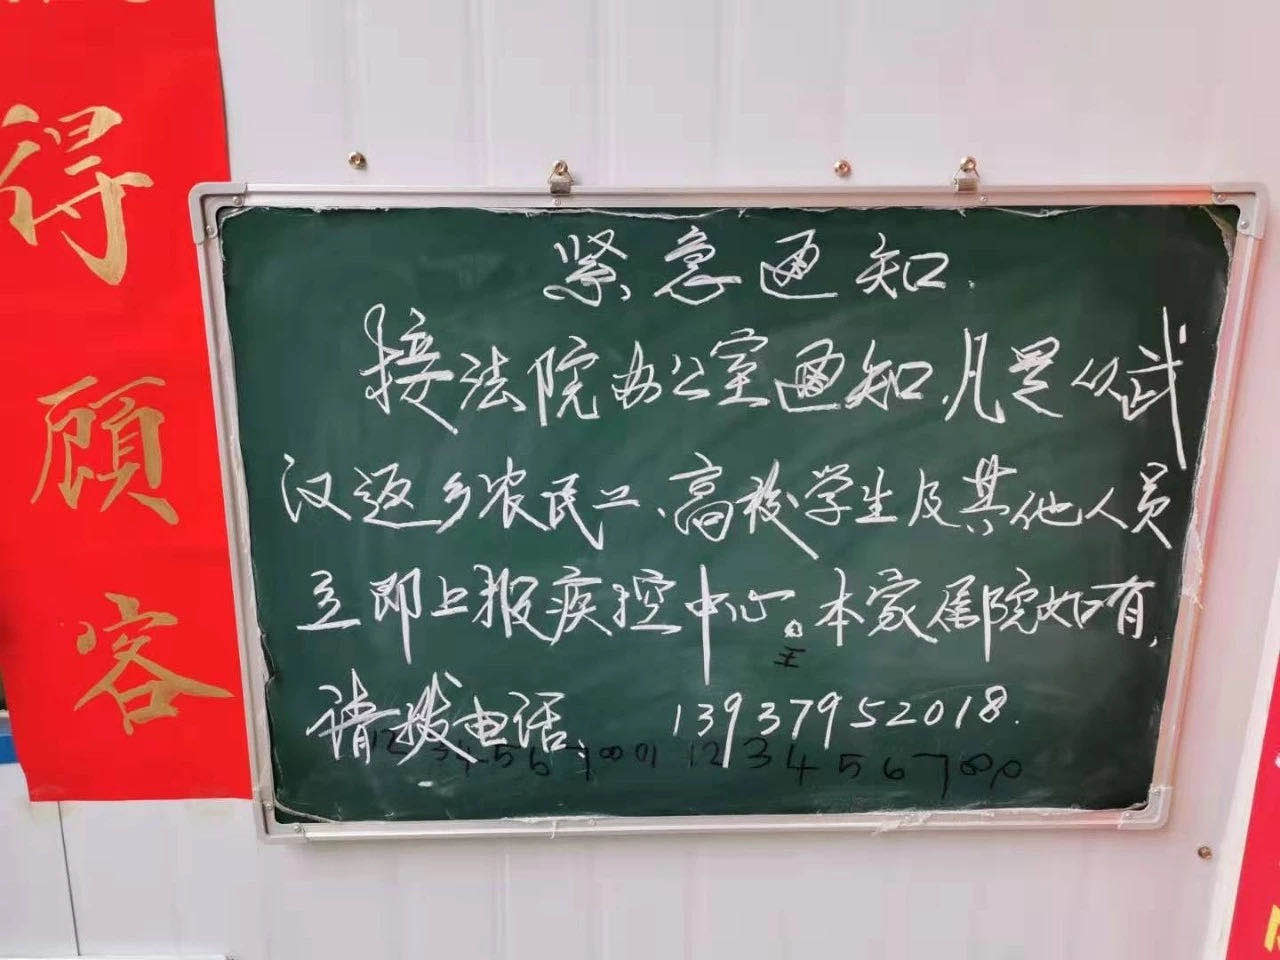 得顧客
紧急通知.
接法院办公室通知,凡是从武
汉返乡农民工、高校学生及其他人员
立即上报疾控中心。本家属院如有,
请拨电话、 13937952018.
王
1234567
1234567890